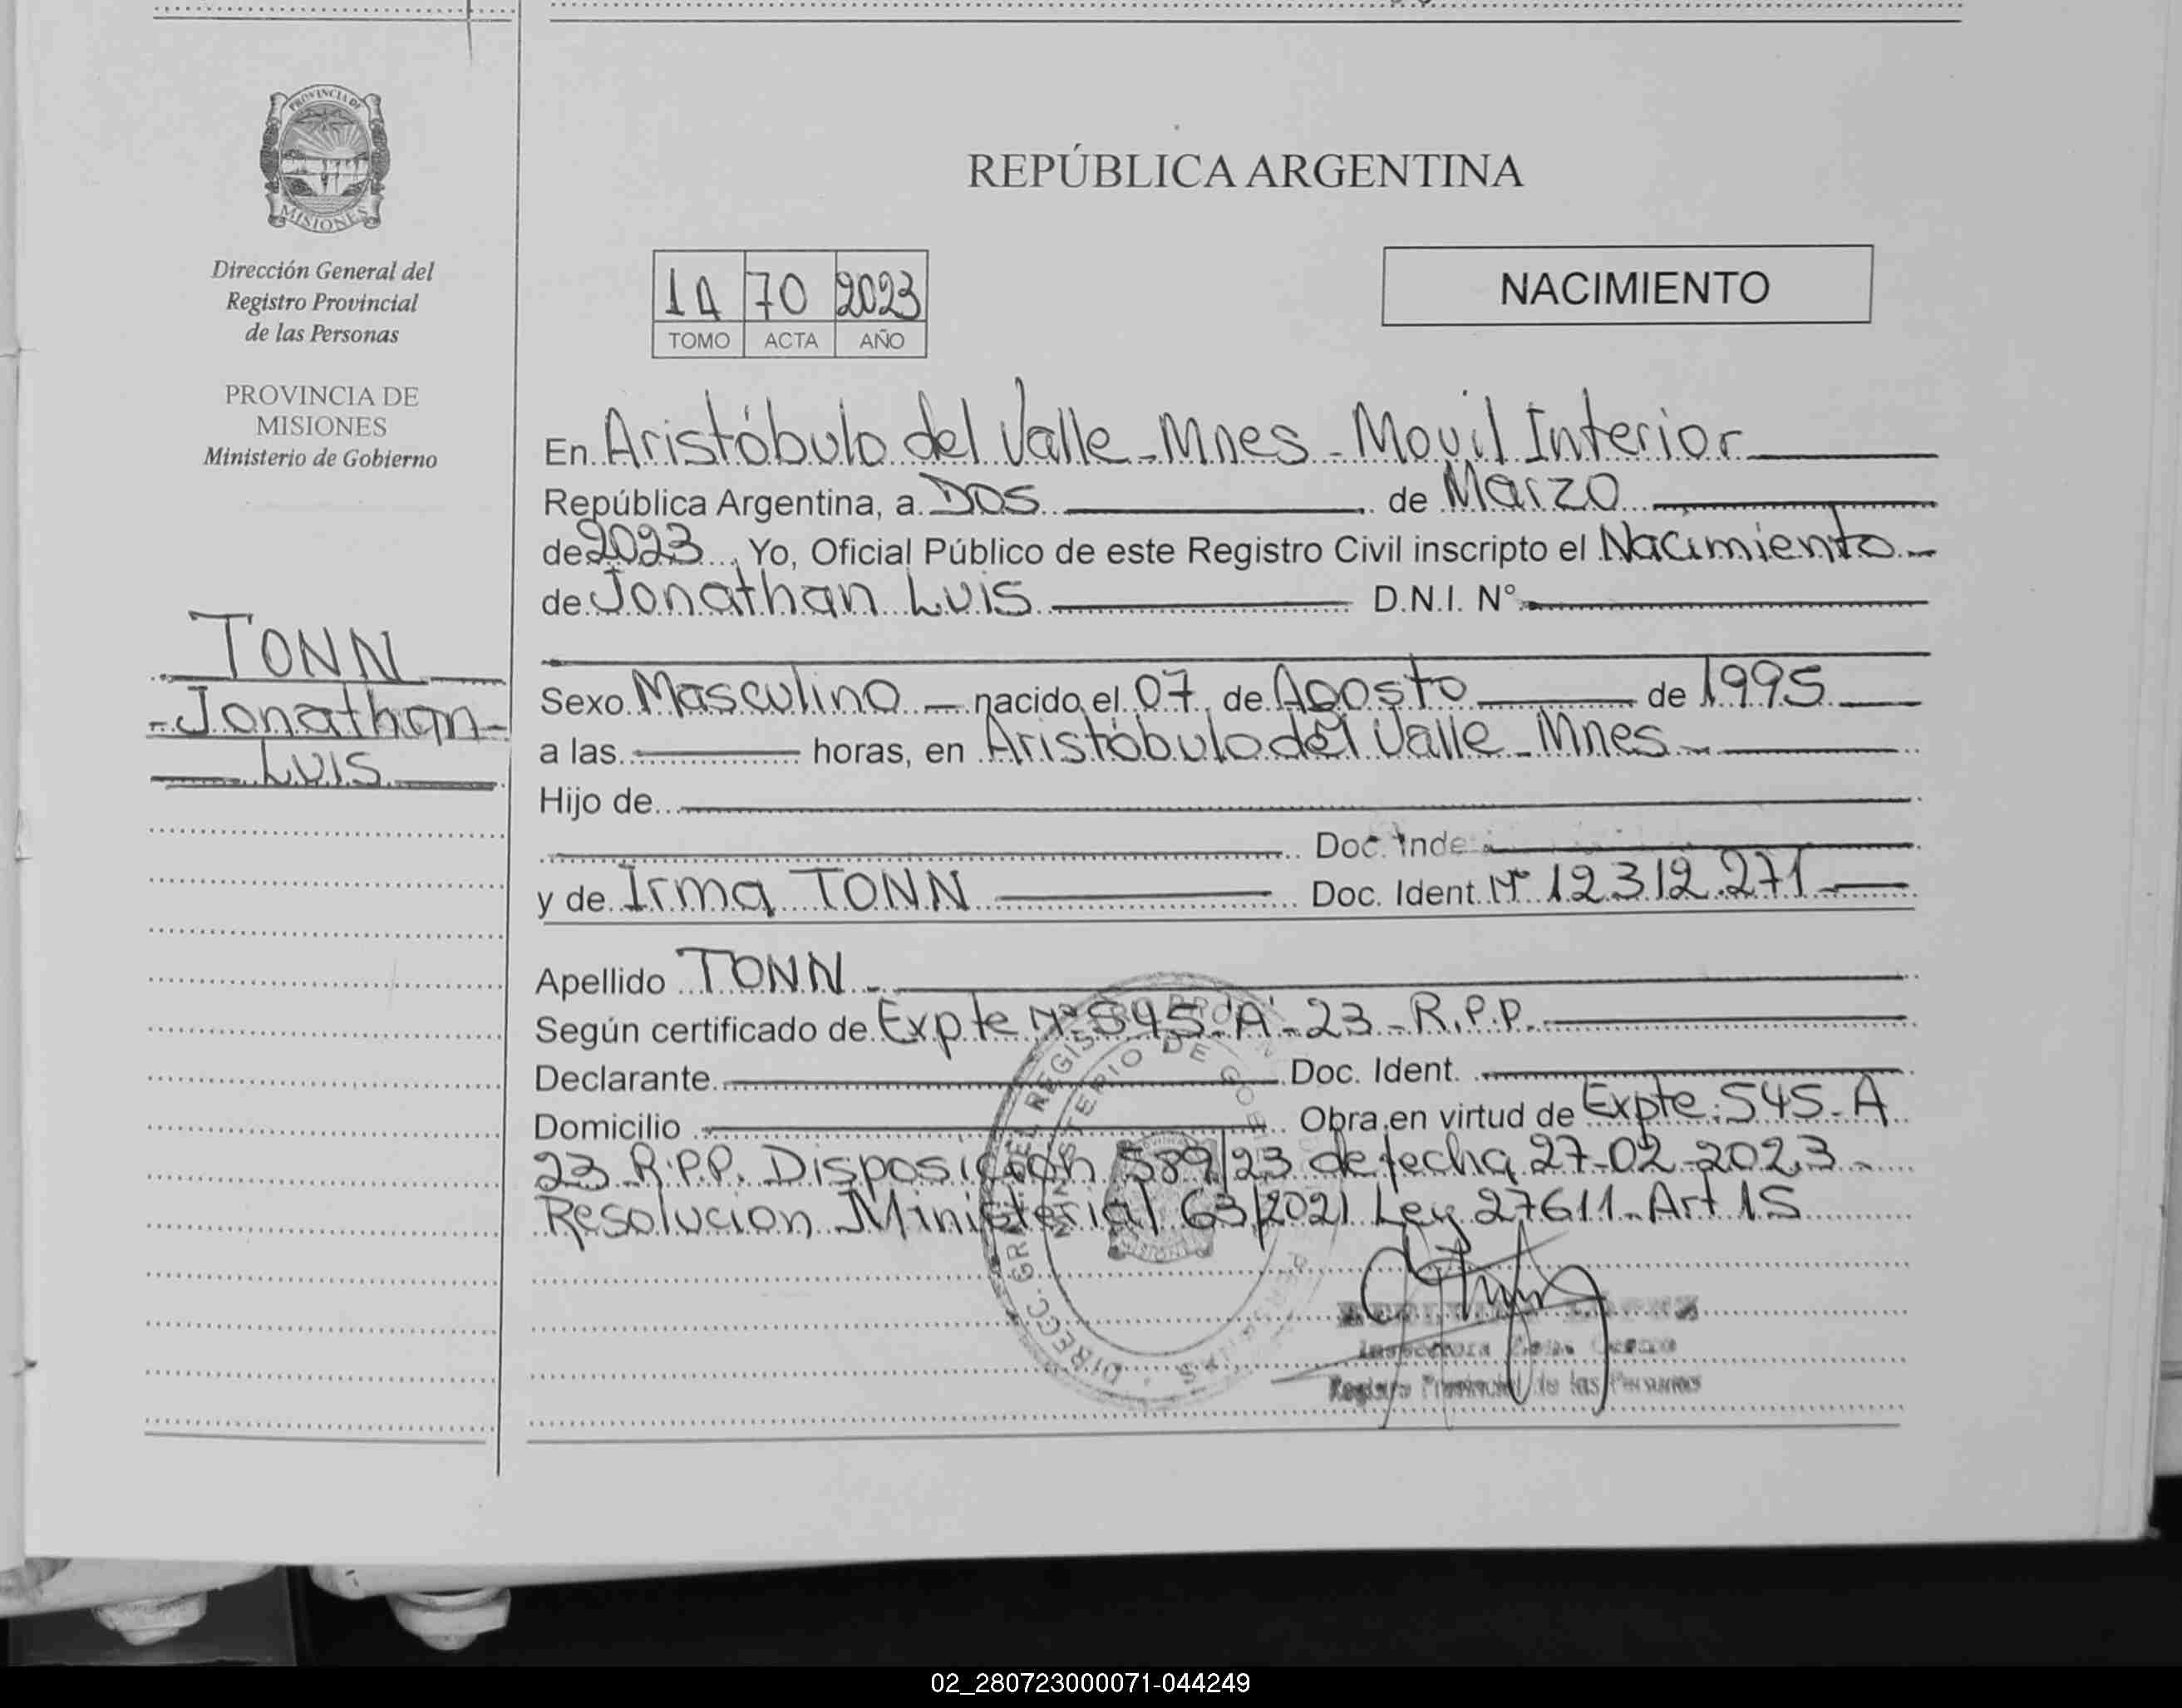 PROVINCIA DE
MISIONES
Dirección General del
Registro Provincial
de las Personas
PROVINCIA DE
MISIONES
Ministerio de Gobierno
TONN
Jonathan
Luis
REPÚBLICA ARGENTINA
70 2023
TOMO ACTA AÑO
NACIMIENTO
En Aristóbulo del Valle - Mnes - Movil Interior
República Argentina, a DOS de Marzo
de 2023, Yo, Oficial Público de este Registro Civil inscripto el Nacimiento
de Jonathan Luis D.N.I. Nº
Sexo Masculino nacido el 07 de Agosto de 1995
a las horas, en Aristóbulo del Valle - Mnes
Hijo de
Doc. Inde
y de Irma TONN Doc. Ident. Nº 12.312.271
Apellido TONN
Según certificado de Expte Nº 545-"A"-23 - R.P.P.
Declarante Doc. Ident.
Domicilio Obra en virtud de Expte. 545-A
23 R.P.P. Disposición 589/23 de fecha 27-02-2023
Resolucion Ministerial 63/2021 Ley 27611 - Art 15
DIRECC. GRAL. DEL REGISTRO
MINISTERIO DE
MISIONES
Registro Provincial de las Personas
02_280723000071-044249